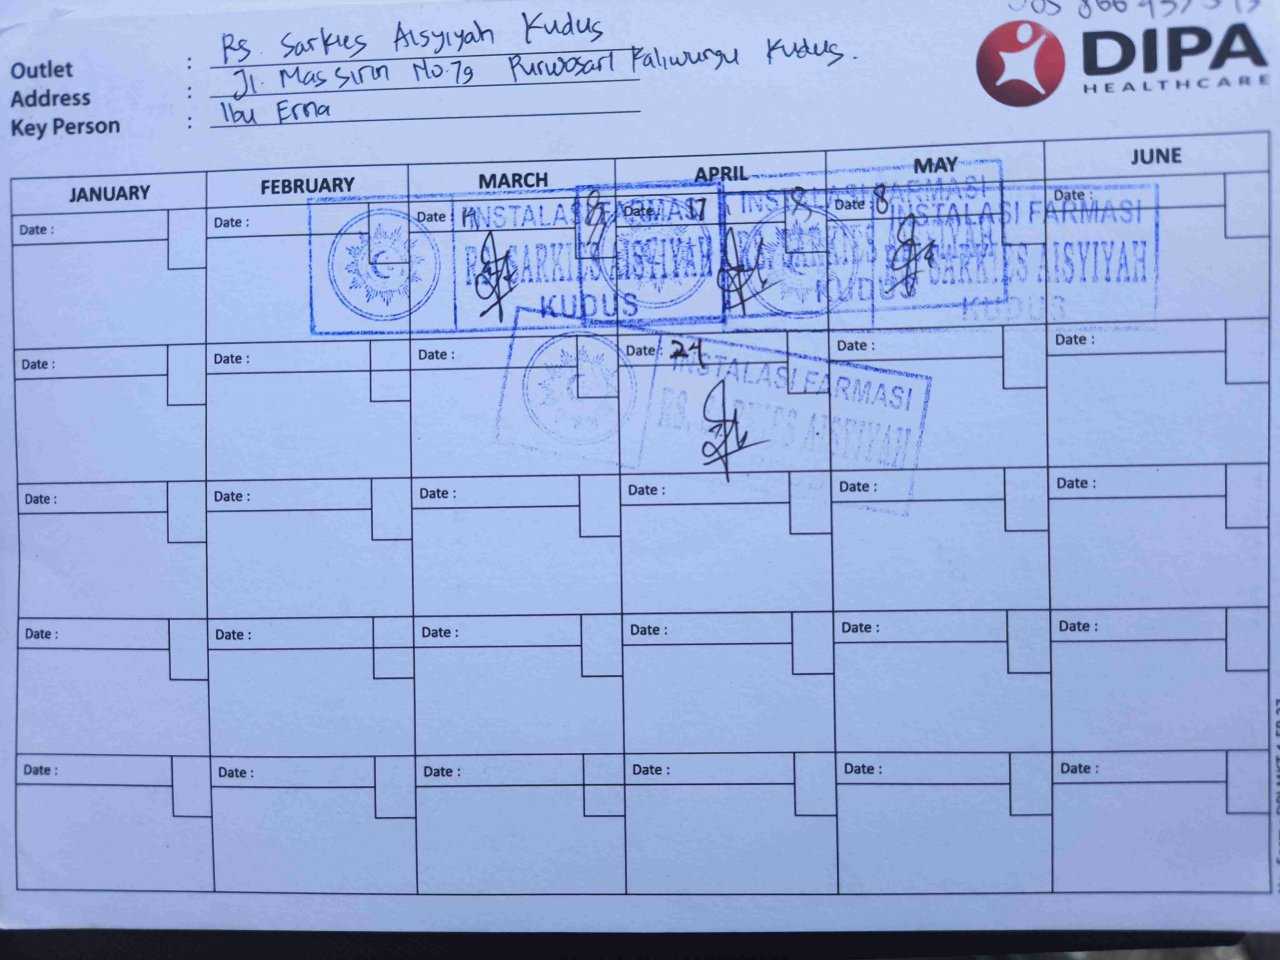 Outlet : Rs. Sarkies Aisyiyah Kudus
Address : Jl. Mas Sirin No.79 Purwosari Kaliwungu Kudus.
Key Person : Ibu Erna
DIPA
HEALTHCARE
JANUARY FEBRUARY MARCH APRIL MAY JUNE
Date : Date : Date : Date : 17 Date : 8 Date :
INSTALASI FARMASI INSTALASI FARMASI INSTALASI FARMASI
RS. SARKIES AISYIYAH RS. SARKIES AISYIYAH
KUDUS KUDUS KUDUS
Date : Date : Date : Date : 24 Date : Date :
INSTALASI FARMASI
RS. SARKIES AISYIYAH
Date : Date : Date : Date : Date : Date :
Date : Date : Date : Date : Date : Date :
Date : Date : Date : Date : Date : Date :